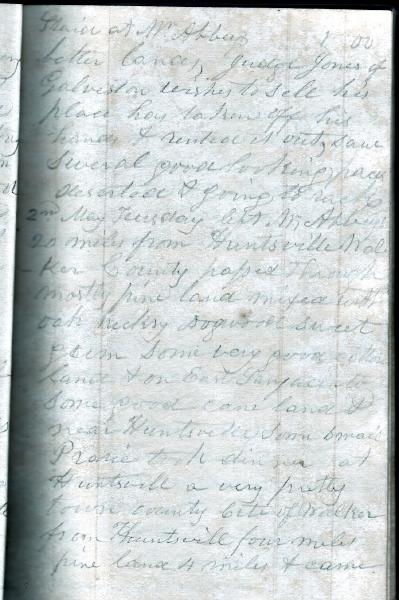 Staid at Mr Abbeys 1 00
better lands, Judge Jones of
Galveston wishes to sell his
place has taken off his
hands & rented it out, saw
Several good looking places
deserted & going to ruin
2nd May Tuesday left Mr Abbeys
20 miles from Huntsville Wal
-ker County passed through
mostly pine land mixed with
oak hickry dogwood sweet
gum some very good cotton
land & on East Sanjacinto
some good cane land &
near Huntsville some small
Prarie took dinner at
Huntsvill a very pretty
town county Cite of Walker
from Huntsvill four miles
pine land 4 miles & came